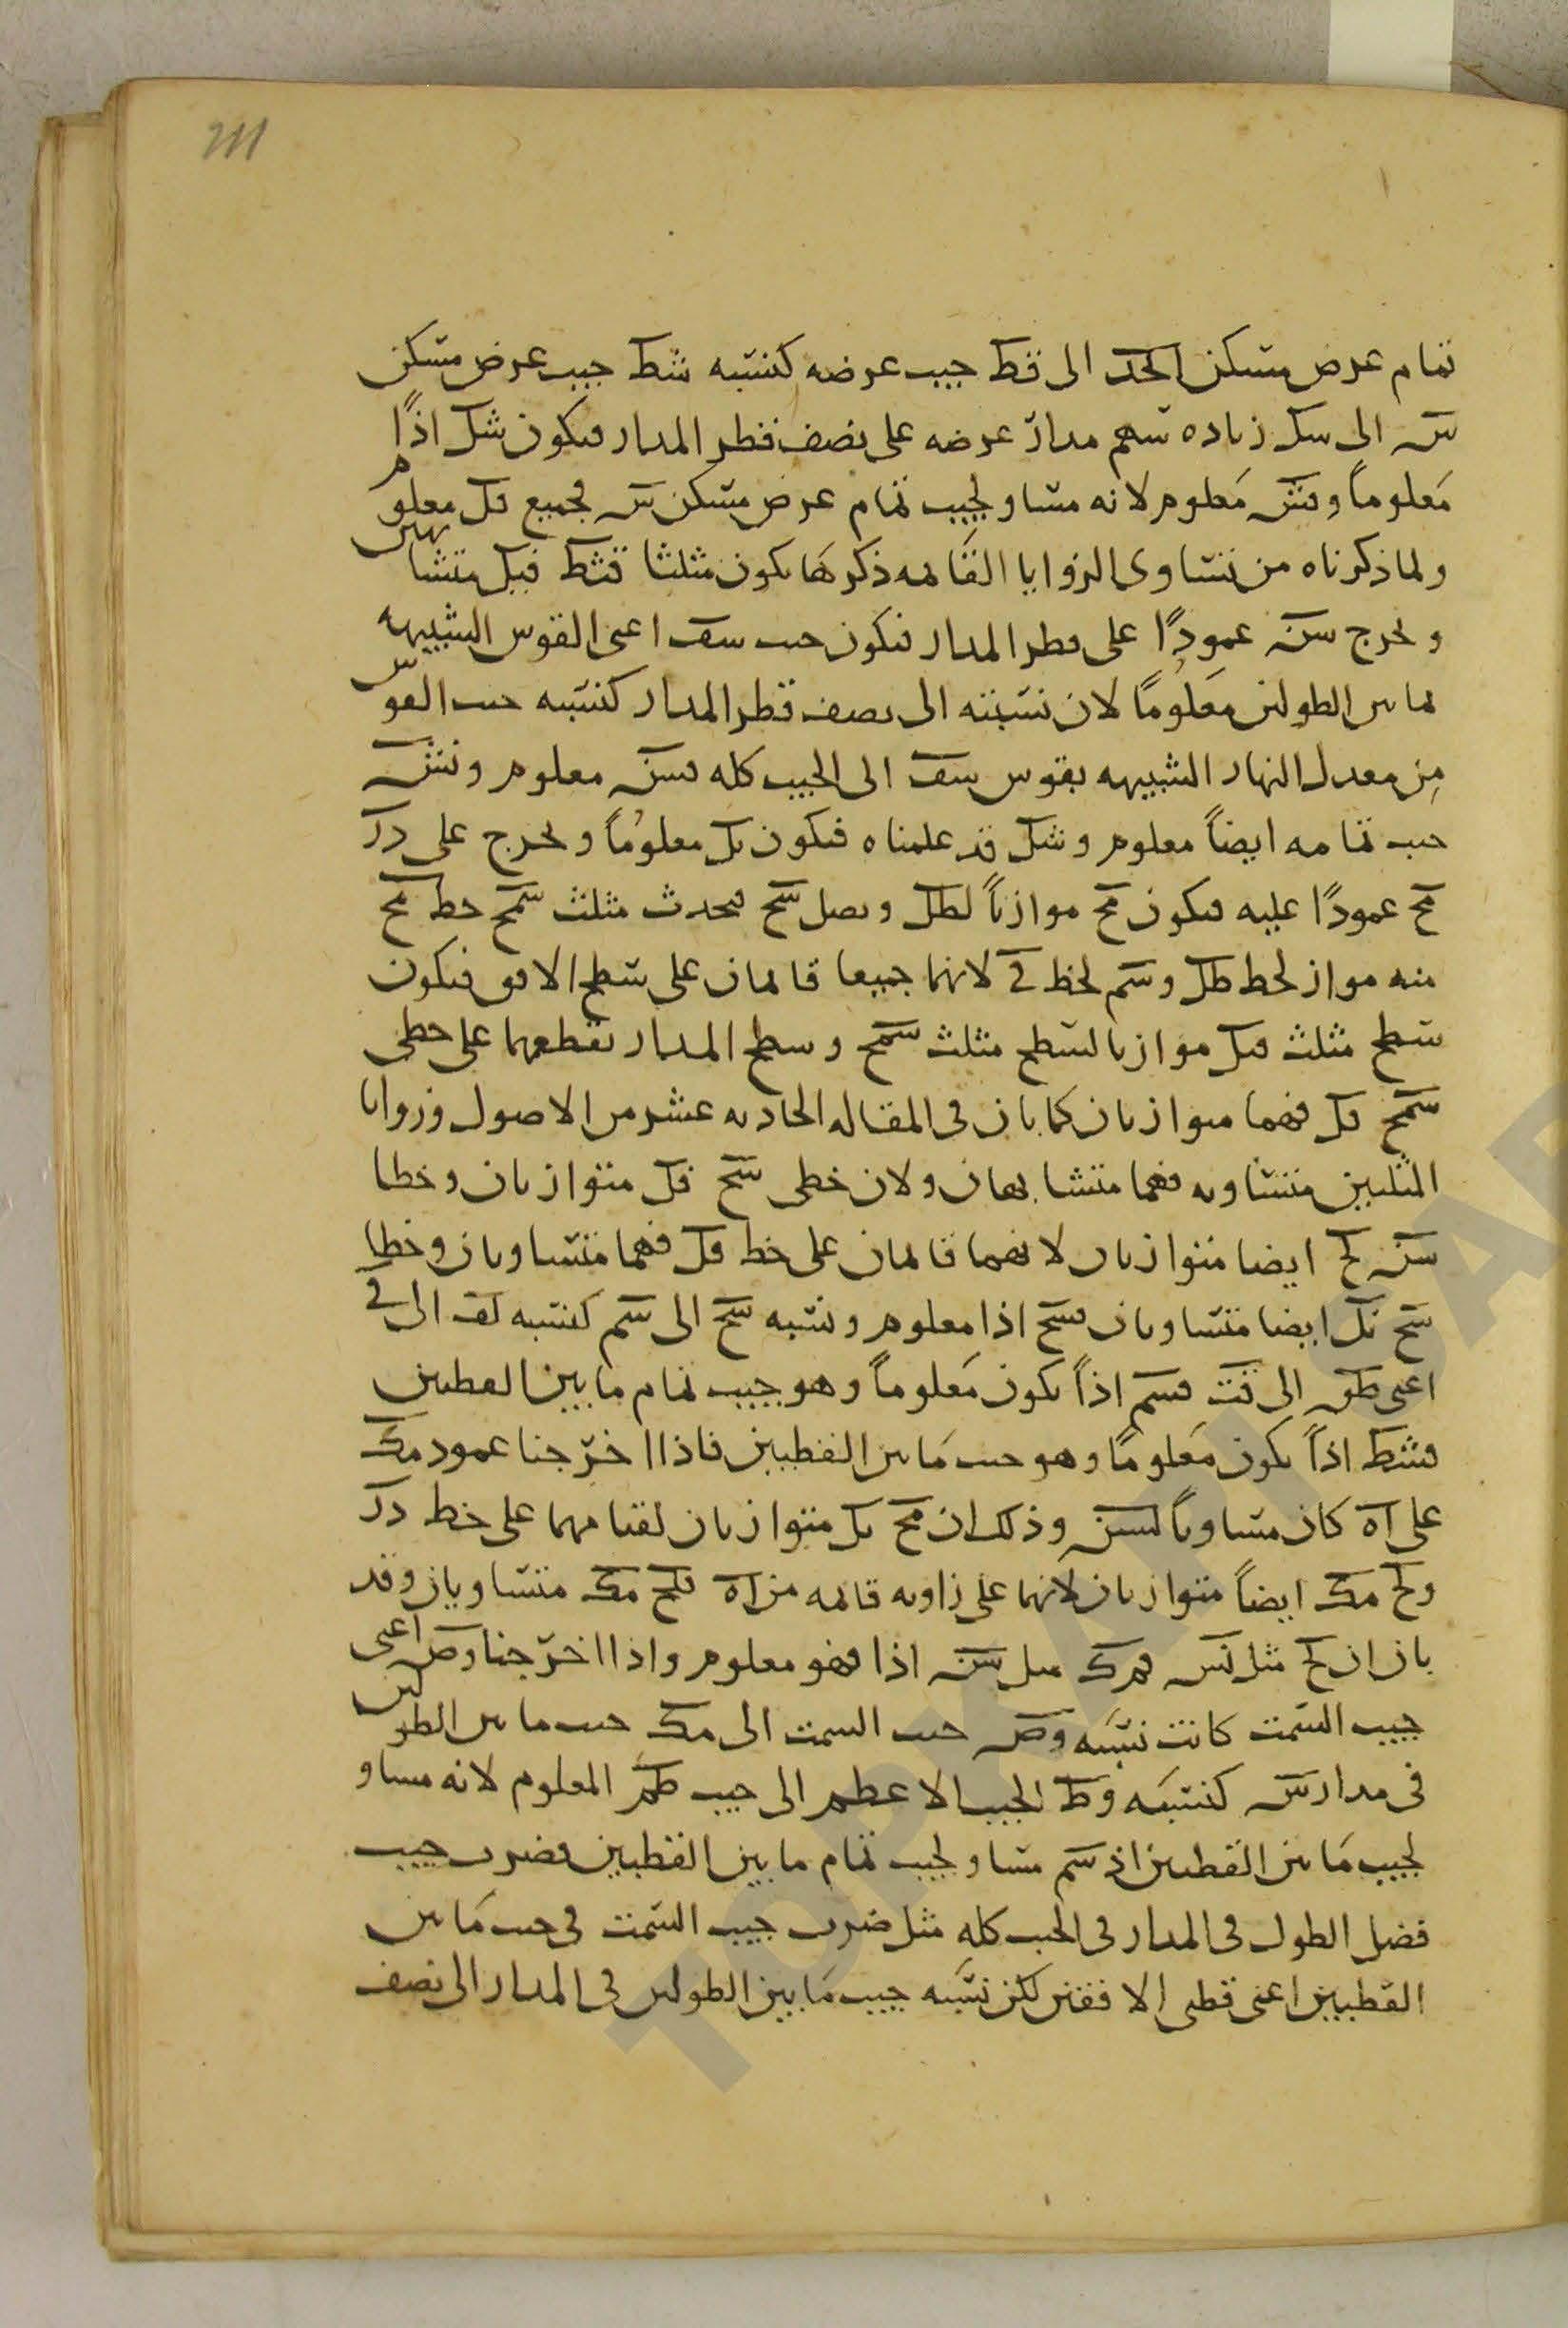 111
تمام عرض مسكن الحد الى قط جيب عرضه كنسبه شط جيب عرض مسكن
س الى سك زياده سهم مدار عرضه على نصف قطر المدار فيكون شك اذًا
معلوماً وقش معلوم لانه مساو لجيب تمام عرض مسكن س فجميع قك معلوم
ولما ذكرناه من تساوى الزوايا القائمه ذكرها يكون مثلثا قشط فيك متشابهين
ونخرج سن عمودًا على قطر المدار فيكون جيب سف اعنى القوس الشبيهه
لما بين الطولين معلومًا لان نسبته الى نصف قطر المدار كنسبه جيب القوس
من معدل النهار الشبيهه بقوس سف الى الجيب كله فسن معلوم ونش
جيب تمامه ايضاً معلوم وشك قد علمناه فيكون نك معلومًا ونخرج على دك
مح عمودًا عليه فيكون مح موازياً لطك ونصل سح فيحدث مثلث سمح خط مح
منه مواز لخط طك وسم لخط فى لانهما جميعا قائمان على سطح الافق فيكون
سطح مثلث فيك موازيا لسطح مثلث سمح وسطح المدار يقطعهما على خطى
سمح فك فهما متوازيان كما بان فى المقاله الحاديه عشر من الاصول وزوايا
المثلثين متساويه فهما متشابهان ولان خطى سح فك متوازيان وخطا
سن لح ايضا متوازيان لانهما قائمان على خط فك فهما متساويان وخطا
سح نك ايضا متساويان فسح اذا معلوم ونسبه سح الى سم كنسبه كف الى فى
اعنى طق الى قت فسم اذاً يكون معلوماً وهو جيب تمام ما بين القطبين
فشط اذاً يكون معلومًا وهو جيب ما بين القطبين فاذا اخرجنا عمود مك
على اه كان مساوياً لسن وذلك ان مح ىك متوازيان لقيامهما على خط دك
ولح مك ايضاً متوازيان لانهما على زاويه قائمه من اه فلح مك متساويان وقد
بان ان لح مثل نس فمك مثل سن اذا فهو معلوم واذا اخرجنا وص اعنى
جيب السمت كانت نسبه وص جيب السمت الى مك جيب ما بين الطولين
فى مدار س كنسبه وط الجيب الاعظم الى جيب طم المعلوم لانه مساو
لجيب ما بين القطبين اذ سم مساو لجيب تمام ما بين القطبين فضرب جيب
فضل الطول فى المدار فى الجيب كله مثل ضرب جيب السمت فى جيب ما بين
القطبين اعنى قطبى الافقين لكن نسبه جيب ما بين الطولين فى المدار الى نصف
TOPKAPI SAR